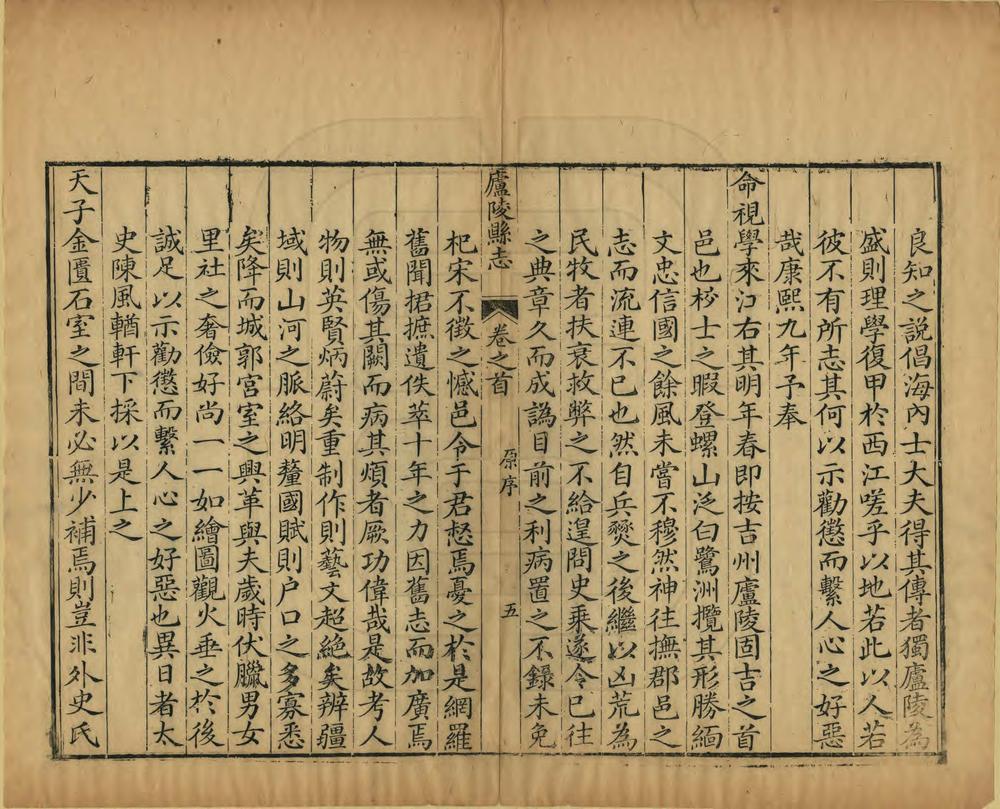 良知之說倡海內士大夫得其傳者獨廬陵為
盛則理學復甲於西江嗟乎以地若此以人若
彼不有所志其何以示勸懲而繫人心之好惡
哉康熙九年予奉
命視學來江右其明年春即按吉州廬陵固吉之首
邑也校士之暇登螺山泛白鷺洲攬其形勝緬
文忠信國之餘風未嘗不穆然神往撫郡邑之
志而流連不已也然自兵燹之後繼以凶荒為
民牧者扶衰救弊之不給遑問史乘遂令已往
之典章久而成譌目前之利病置之不錄未免
廬陵縣志
卷之首
原序
五
杞宋不徵之憾邑令于君惄焉憂之於是網羅
舊聞捃摭遺佚萃十年之力因舊志而加廣焉
無或傷其闕而病其煩者厥功偉哉是故考人
物則英賢炳蔚矣重制作則藝文超絕矣辨疆
域則山河之脈絡明釐國賦則户口之多寡悉
矣降而城郭宮室之興革與夫歲時伏臘男女
里社之奢儉好尚一一如繪圖觀火垂之於後
誠足以示勸懲而繫人心之好惡也異日者太
史陳風輶軒下採以是上之
天子金匱石室之間未必無少補焉則豈非外史氏